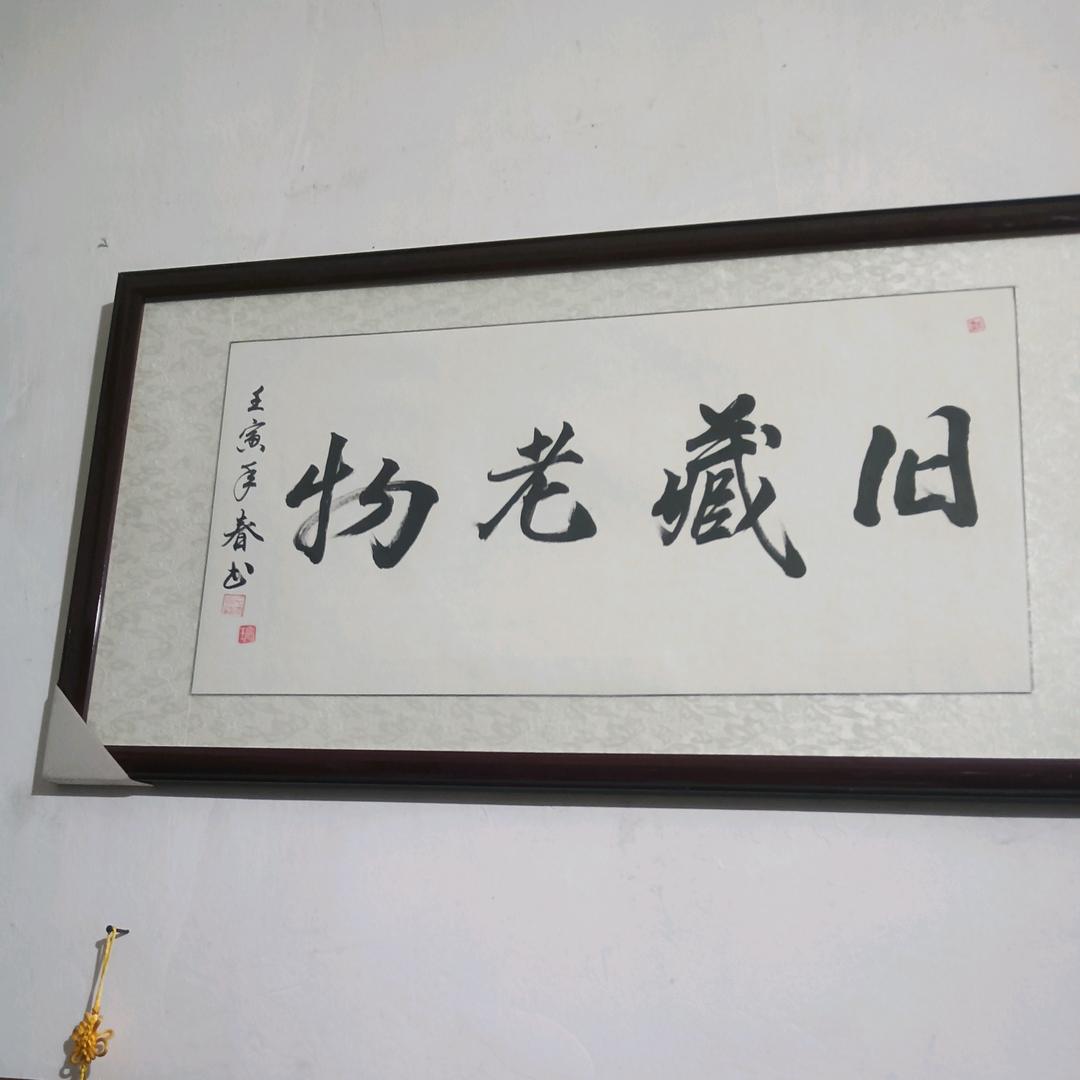 旧藏老物
壬寅年春书